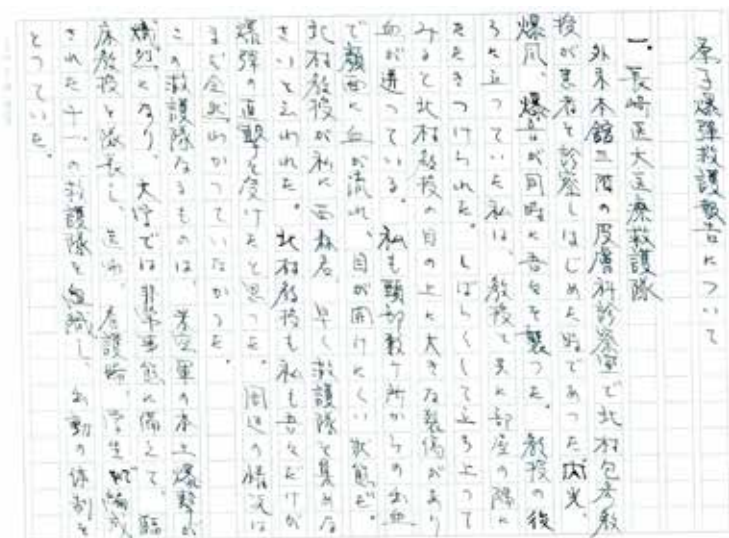 原子爆弾救護報告について
一．長崎医大医療救護隊
外来本館三階の皮膚科診察室で北村包彦教
授が患者を診察しはじめた時であった。閃光、
爆風、爆音が同時に吾々を襲つた。教授の後
ろに立つていた私は、教授と共に部屋の隅に
たたきつけられた。しばらくして立ち上つて
みると北村教授の目の上に大きな裂傷があり
血が迸つている。私も頭部数ヶ所からの出血
で顔面に血が流れ、目が開けにくい状態だ。
北村教授が私に西森君、早く救護隊を集めな
さいと云われた。北村教授も私も吾々だけが
爆弾の直撃を受けたと思つた。周辺の情況は
まだ全然わかつていなかつた。
この救護隊なるものは、米空軍の本土爆撃が
熾烈になり、大学では非常事態に備えて、臨
床教授を隊長とし、医師、看護婦、学生で編成
された十一の救護隊を組織し、出動の体制を
とつていた。